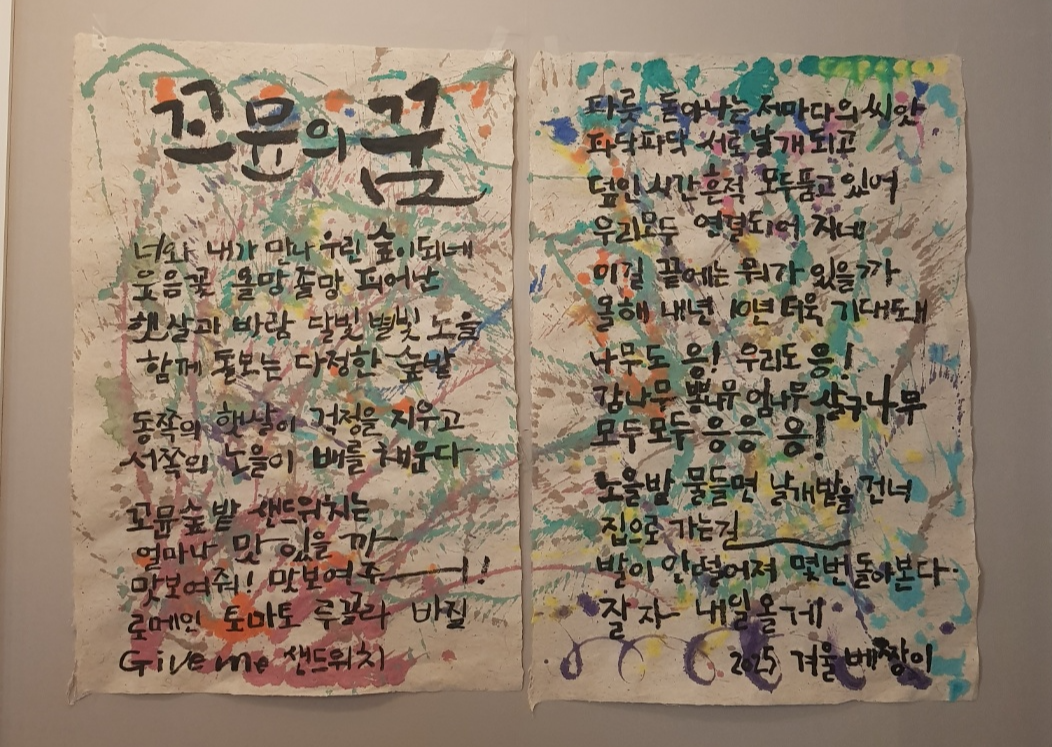 꼬문의 꿈
너와 내가 만나 우린 숲이되네
웃음꽃 올망졸망 피어난
햇살과 바람 달빛 별빛 노을
함께 돌보는 다정한 숲밭
동쪽의 햇살이 걱정을 지우고
서쪽의 노을이 배를 채운다
꼬문숲밭 샌드위치는
얼마나 맛있을까
맛보여줘! 맛보여주ㅓ!
로메인 토마토 루꼴라 바질
Give me 샌드위치
파릇 돋아나는 저마다의 씨앗
파닥파닥 서로 날개 되고
덮인 시간 흔적 모두 품고 있어
우리모두 연결되어 지네
이길 끝에는 뭐가 있을까
올해 내년 10년 더욱 기대돼
나무도 응! 우리도 응!
감나무 뽕나무 엄나무 살구나무
모두모두 응응 응!
노을밤 물들면 날개밭을 건너
집으로 가는길
발이 안떨어져 몇번 돌아본다.
잘자 내일올게
2025 겨울 베짱이